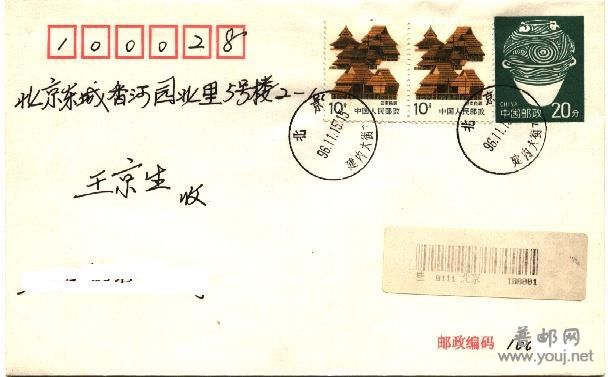 100028
北京东城香河园北里5号楼2-
10分
云南民居
中国人民邮政
10分
云南民居
中国人民邮政
CHINA
中国邮政
20分
北京
96.11.15.15
建内大街
北京
96.11.15
建内大街
王京生 收
0111 北京
邮政编码 100
普邮网
www.youj.net